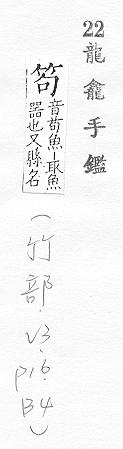 22龍龕手鑑
笱音苟魚─取魚
器也又縣名
(竹部.V3.P16.B4)